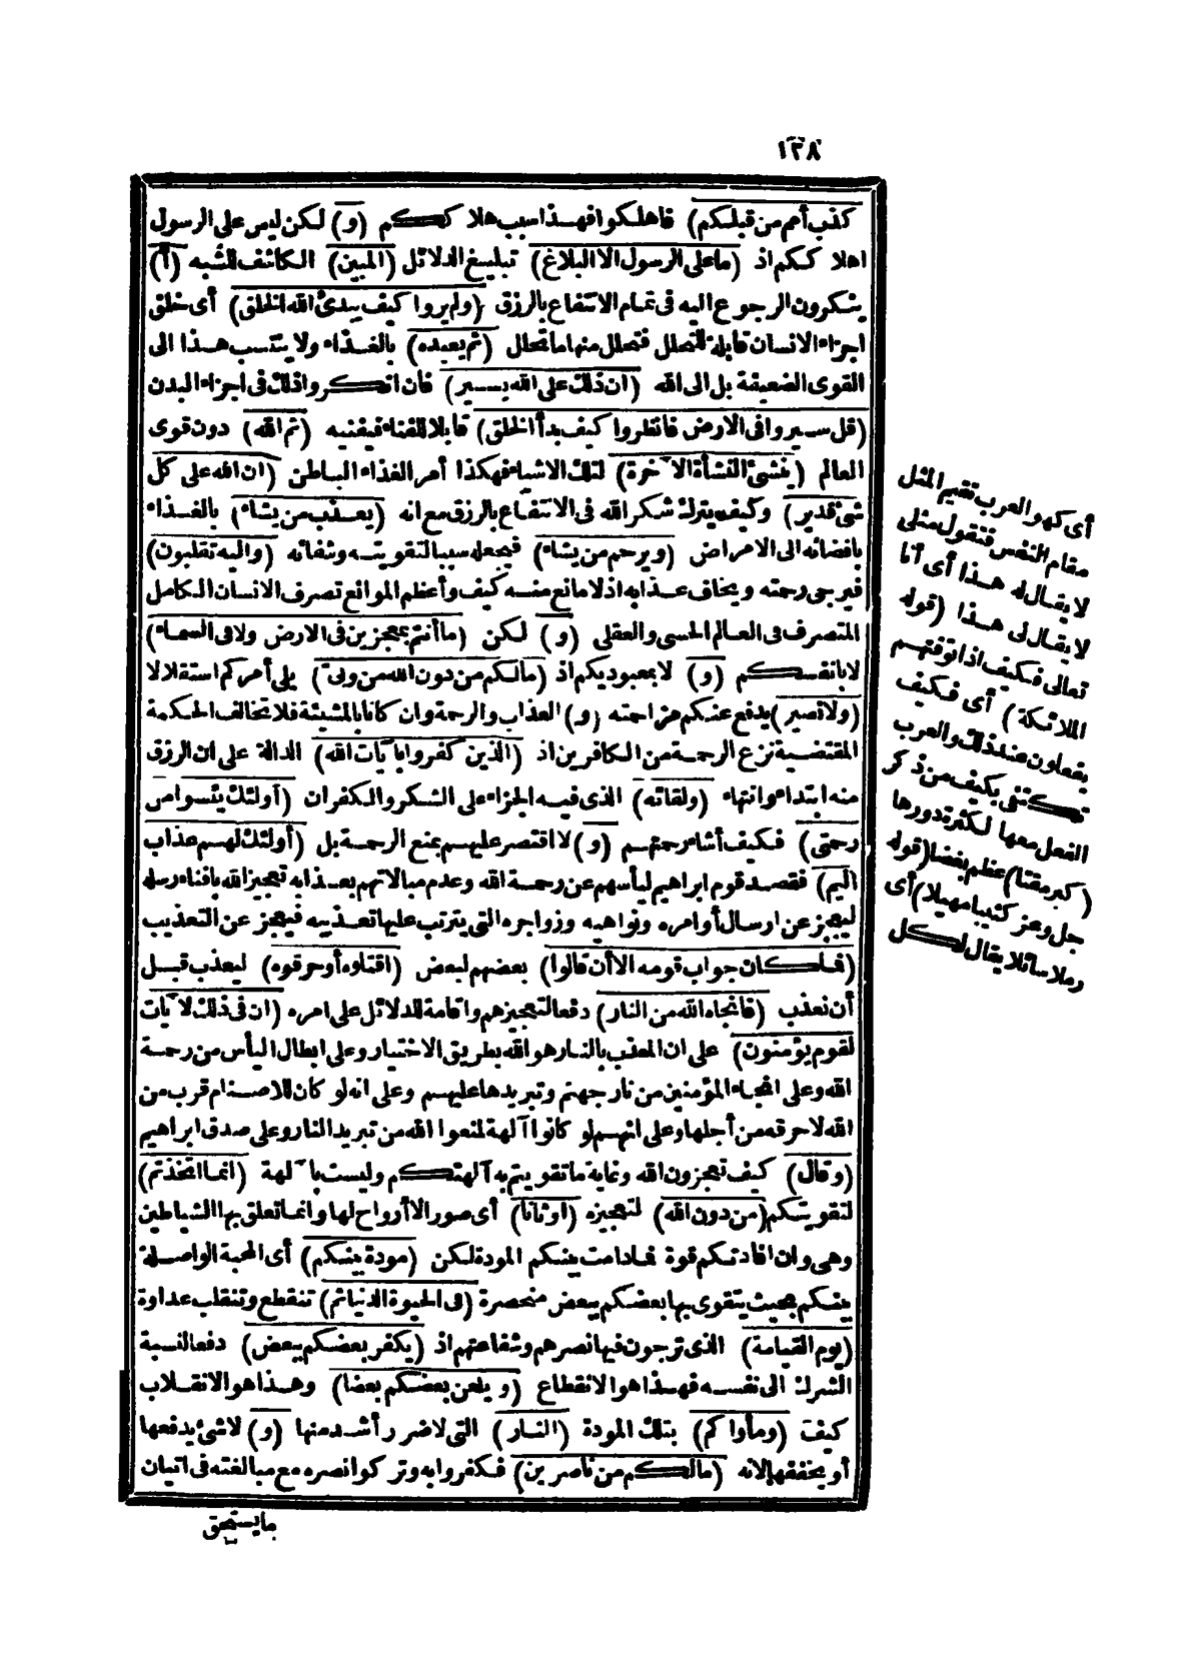 ١٣٨
كذب أمم من قبلكم) فاهلكوا فهذا سبب هلا ككم (و) لكن ليس على الرسول
اهلا ككم اذ (ما على الرسول الا البلاغ) تبليغ الدلائل (المبين) الكاشف للشبه (أ)
يشكرون الرجوع اليه فى تمام الانتفاع بالرزق (ولم يروا كيف يبدئ الله الخلق) أى خلق
اجزاء الانسان قابلة للتحلل فتحلل منها ما تحلل (ثم يعيده) بالغذاء ولا ينتسب هذا الى
القوى الضعيفة بل الى الله (ان ذلك على الله يسير) فان انكروا ذلك فى اجزاء البدن
(قل سيروا فى الارض فانظروا كيف بدأ الخلق) قابلا للفناء فيفنيه (ثم الله) دون قوى
العالم (ينشئ النشأة الآخرة) لتلك الاشياء فهكذا أمر الغذاء الباطن (ان الله على كل
شئ قدير) وكيف يترك شكر الله فى الانتفاع بالرزق مع انه (يعذب من يشاء) بالغذاء
بافضائه الى الامراض (ويرحم من يشاء) فيجعله سببا لتقويته وشفائه (واليه تقلبون)
فيرجى رحمته ويخاف عذابه اذ لا مانع منه كيف وأعظم الموانع تصرف الانسان الكامل
المتصرف فى العالم الحسى والعقلى (و) لكن (ما أنتم بمعجزين فى الارض ولا فى السماء)
لا بانفسكم (و) لا بمعبوديكم اذ (مالكم من دون الله من ولى) يلى أمركم استقلالا
(ولا نصير) يدفع عنكم مزاحمته (و) العذاب والرحمة وان كانا بالمشيئة فلا تخالف الحكمة
المقتضية نزع الرحمة من الكافرين اذ (الذين كفروا بآيات الله) الدالة على ان الرزق
منه ابتداء وانتهاء (ولقائه) الذى فيه الجزاء على الشكر والكفران (أولئك يئسوا من
رحمتى) فكيف أشاء رحمتهم (و) لا اقتصر عليهم بمنع الرحمة بل (أولئك لهم عذاب
اليم) فقصد قوم ابراهيم ليأسهم عن رحمة الله وعدم مبالاتهم بعذابه تعجيز الله بافناء رسله
ليعجز عن ارسال أوامره ونواهيه وزواجره التى يترتب عليها تعذيبه فيعجز عن التعذيب
(فما كان جواب قومه الا أن قالوا) بعضهم لبعض (اقتلوه أو حرقوه) ليعذب قبل
أن نعذب (فانجاه الله من النار) دفعا لتعجيزهم واقامة للدلائل على امره (ان فى ذلك لآيات
لقوم يؤمنون) على ان المعذب بالنار هو الله بطريق الاختيار وعلى ابطال اليأس من رحمة
الله وعلى انجاء المؤمنين من نار جهنم وتبريدها عليهم وعلى انه لو كان للاصنام قرب من
الله لاحرقه من أجلها وعلى انهم لو كانوا آلهة لمنعوا الله من تبريد النار وعلى صدق ابراهيم
(وقال) كيف تعجزون الله وغاية ما تقويتم به آلهتكم وليست بآلهة (انما اتخذتم)
لتقويتكم (من دون الله) لتعجيزه (اوثانا) أى صور الا أرواح لها وانما تعلق بها الشياطين
وهى وان افادتكم قوة فمادامت بينكم المودة لكن (مودة بينكم) أى المحبة الواصلة
بينكم بحيث يتقوى بها بعضكم ببعض منحصرة (فى الحيوة الدنيا ثم) تنقطع وتنقلب عداوة
(يوم القيامة) الذى ترجون فيها نصرهم وشفاعتهم اذ (يكفر بعضكم ببعض) دفعا لنسبة
الشرك الى نفسه فهذا هو الانقطاع (ويلعن بعضكم بعضا) وهذا هو الانقلاب
كيف (ومأواكم) بتلك المودة (النار) التى لا ضرر أشد منها (و) لا شئ يدفعها
أو يخففها لانه (مالكم من ناصرين) فكفروا به وتركوا نصره مع مبالغته فى اتيان
ما يستحق
أى كهو العرب تقيم المثل
مقام النفس فتقول مثلى
لا يقال له هذا أى أنا
لا يقال لى هذا (قوله
تعالى فكيف اذا توفتهم
الملائكة) أى فكيف
يفعلون عند ذلك والعرب
تكتفى بكيف من ذكر
الفعل معها لكثرة دورها
(كبر مقتا) عظم بغضا (قوله
جل وعز كثيبا مهيلا) أى
رملا سائلا يقال لكل